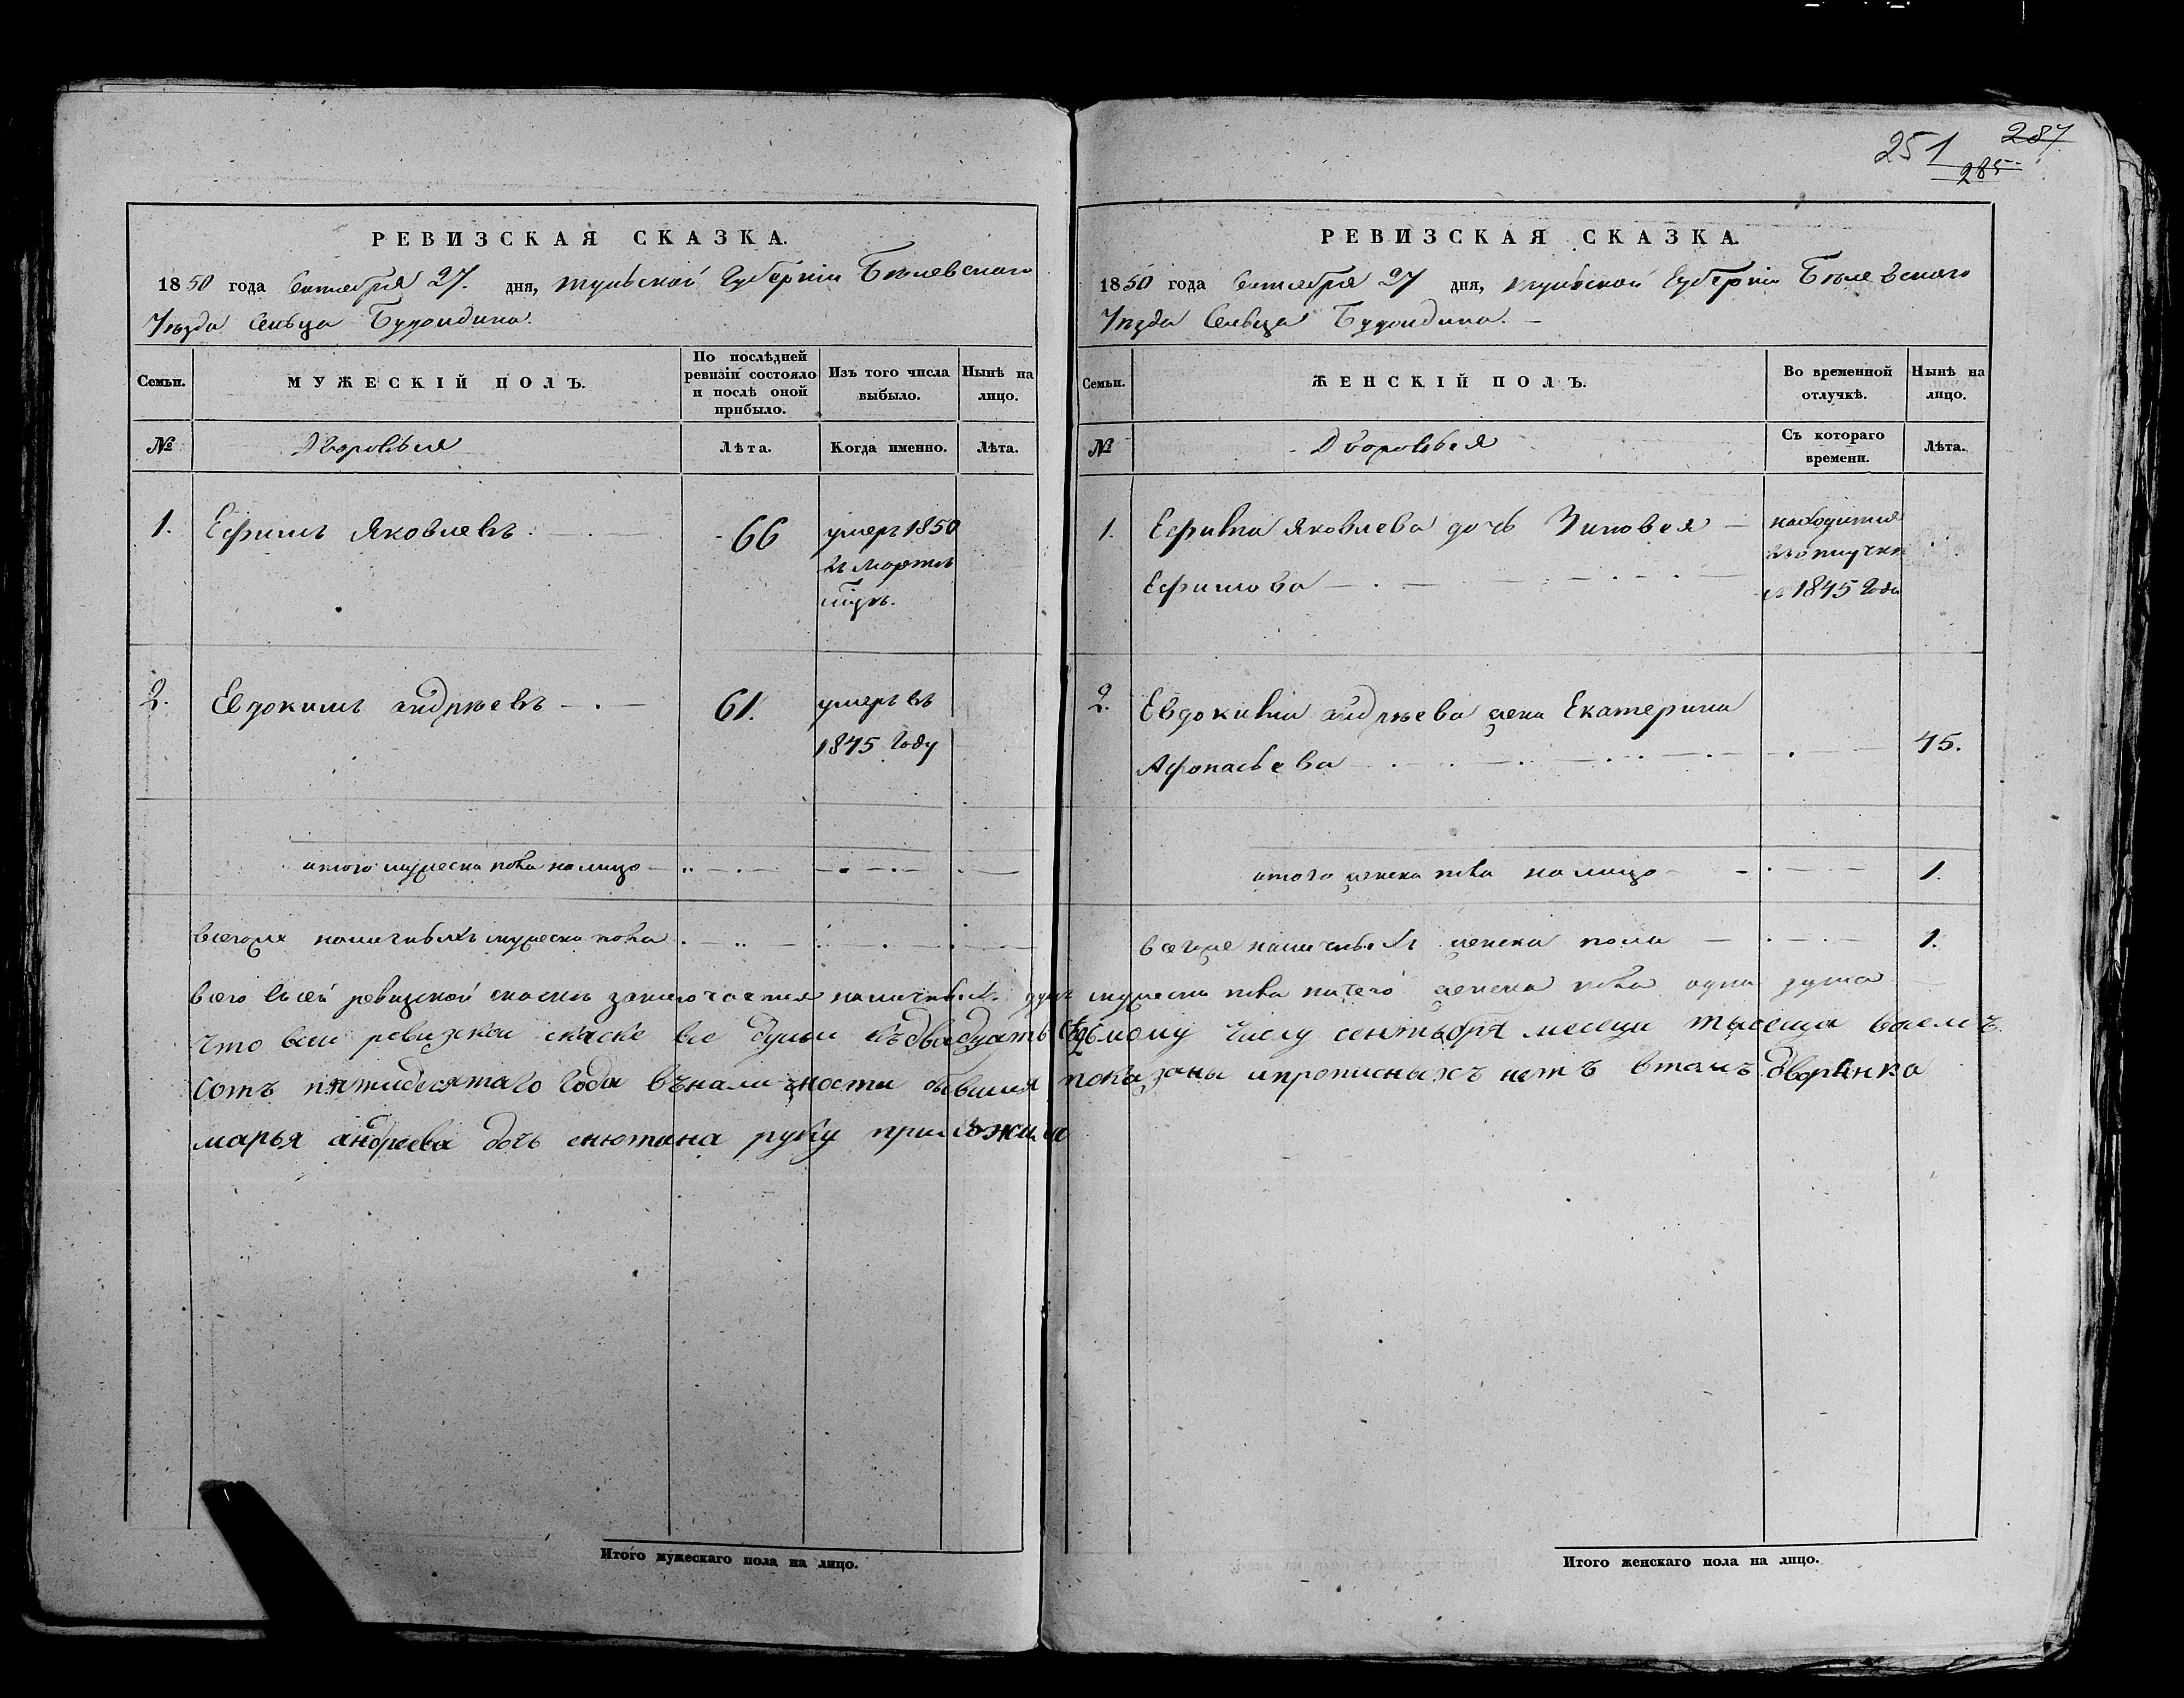 251 287
285
РЕВИЗСКАЯ СКАЗКА.
1850 года Сентября 27. дня, Тульской Губерніи Бѣлевскаго
Уѣзда Сельца
Семьи.
МУЖЕСКІЙ ПОЛЪ.
По послѣдней ревизіи состояло и послѣ оной прибыло.
Изъ того числа выбыло.
Нынѣ на лицо.
№
Дворовыя
Лѣта.
Когда именно.
Лѣта.
1. Ефимъ Яковлевъ. 66 умеръ 1850
въ Мартѣ
2. Евдокимъ Андрѣевъ 61. умеръ въ
1845 Году
итого мужеска пола на лицо
всегоже наличныхъ мужеска пола
Итого мужескаго пола на лицо.
РЕВИЗСКАЯ СКАЗКА.
1850 года Сентября 27 дня, Тульской Губерніи Бѣлевскаго
Уѣзда Сельца
Семьи.
ЖЕНСКІЙ ПОЛЪ.
Во временной отлучкѣ.
Нынѣ на лицо.
№
Дворовыя
Съ котораго времени.
Лѣта.
1. Ефима Яковлева дочь Зиновея находится
Ефимова въ отлучки
съ 1845 Года
2. Евдокима Андрѣева жена Екатерина
Афонасьева 45.
итого женска пола на лицо 1.
всегоже наличныхъ женска пола 1.
всего въ сей ревизской скаскѣ заключается наличныхъ душъ мужеска пола ничего женска пола одна душа
что всей ревизской скаске все души къ двадцать седьмому числу сентября месеца тысеща восемъ
сотъ пятидесятаго года въ наличности бывшия показаны и прописныхъ нетъ втомъ дворянка
марья андреева дочь снютина руку приложила
Итого женскаго пола на лицо.